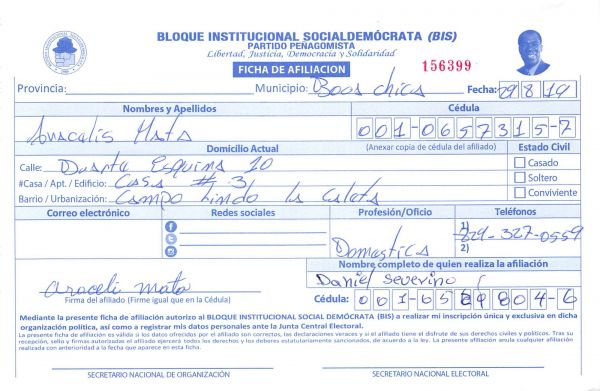 BLOQUE INSTITUCIONAL SOCIALDEMÓCRATA (BIS)
PARTIDO PEÑAGOMISTA
Libertad, Justicia, Democracia y Solidaridad
FICHA DE AFILIACION
156399
Provincia: Municipio: Boca chica Fecha: 29/8/19
Nombres y Apellidos Cédula
Aracelis Mata 001-0657315-7
Domicilio Actual (Anexar copia de cédula del afiliado) Estado Civil
Calle: Duarte Esquina 10 Casado
#Casa / Apt. / Edificio: Casa # 3 Soltero
Barrio / Urbanización: Campo Lindo La Caleta Conviviente
Correo electrónico Redes sociales Profesión/Oficio Teléfonos
1) 829-327-0559
Domestica 2)
Nombre completo de quien realiza la afiliación
araceli mata Daniel Severino
Firma del afiliado (Firme igual que en la Cédula) Cédula: 001-05 9804-6
Mediante la presente ficha de afiliación autorizo al BLOQUE INSTITUCIONAL SOCIAL DEMÓCRATA (BIS) a realizar mi inscripción única y exclusiva en dicha
organización política, así como a registrar mis datos personales ante la Junta Central Electoral.
La presente ficha de afiliación es válida si los datos ofrecidos por el afiliado son correctos, las declaraciones veraces y si el afiliado tiene el disfrute de sus derechos civiles y políticos. Tras su
recepción, sello y firmas autorizadas el afiliado ejercerá todos los derechos y los deberes estatutariamente sancionados, de acuerdo a la ley. La presente afiliación anula cualquier afiliación
realizada con anterioridad a la fecha que aparece en esta ficha.
SECRETARIO NACIONAL DE ORGANIZACIÓN SECRETARIO NACIONAL ELECTORAL